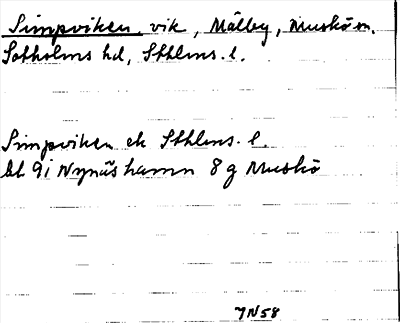 Simpviken, vik, Mälby, Muskö sn.
Sotholms hd, Sthlms. l.
Simpviken ek Sthlms. l.
bl 9i Nynäshamn 8 g Muskö
JN58